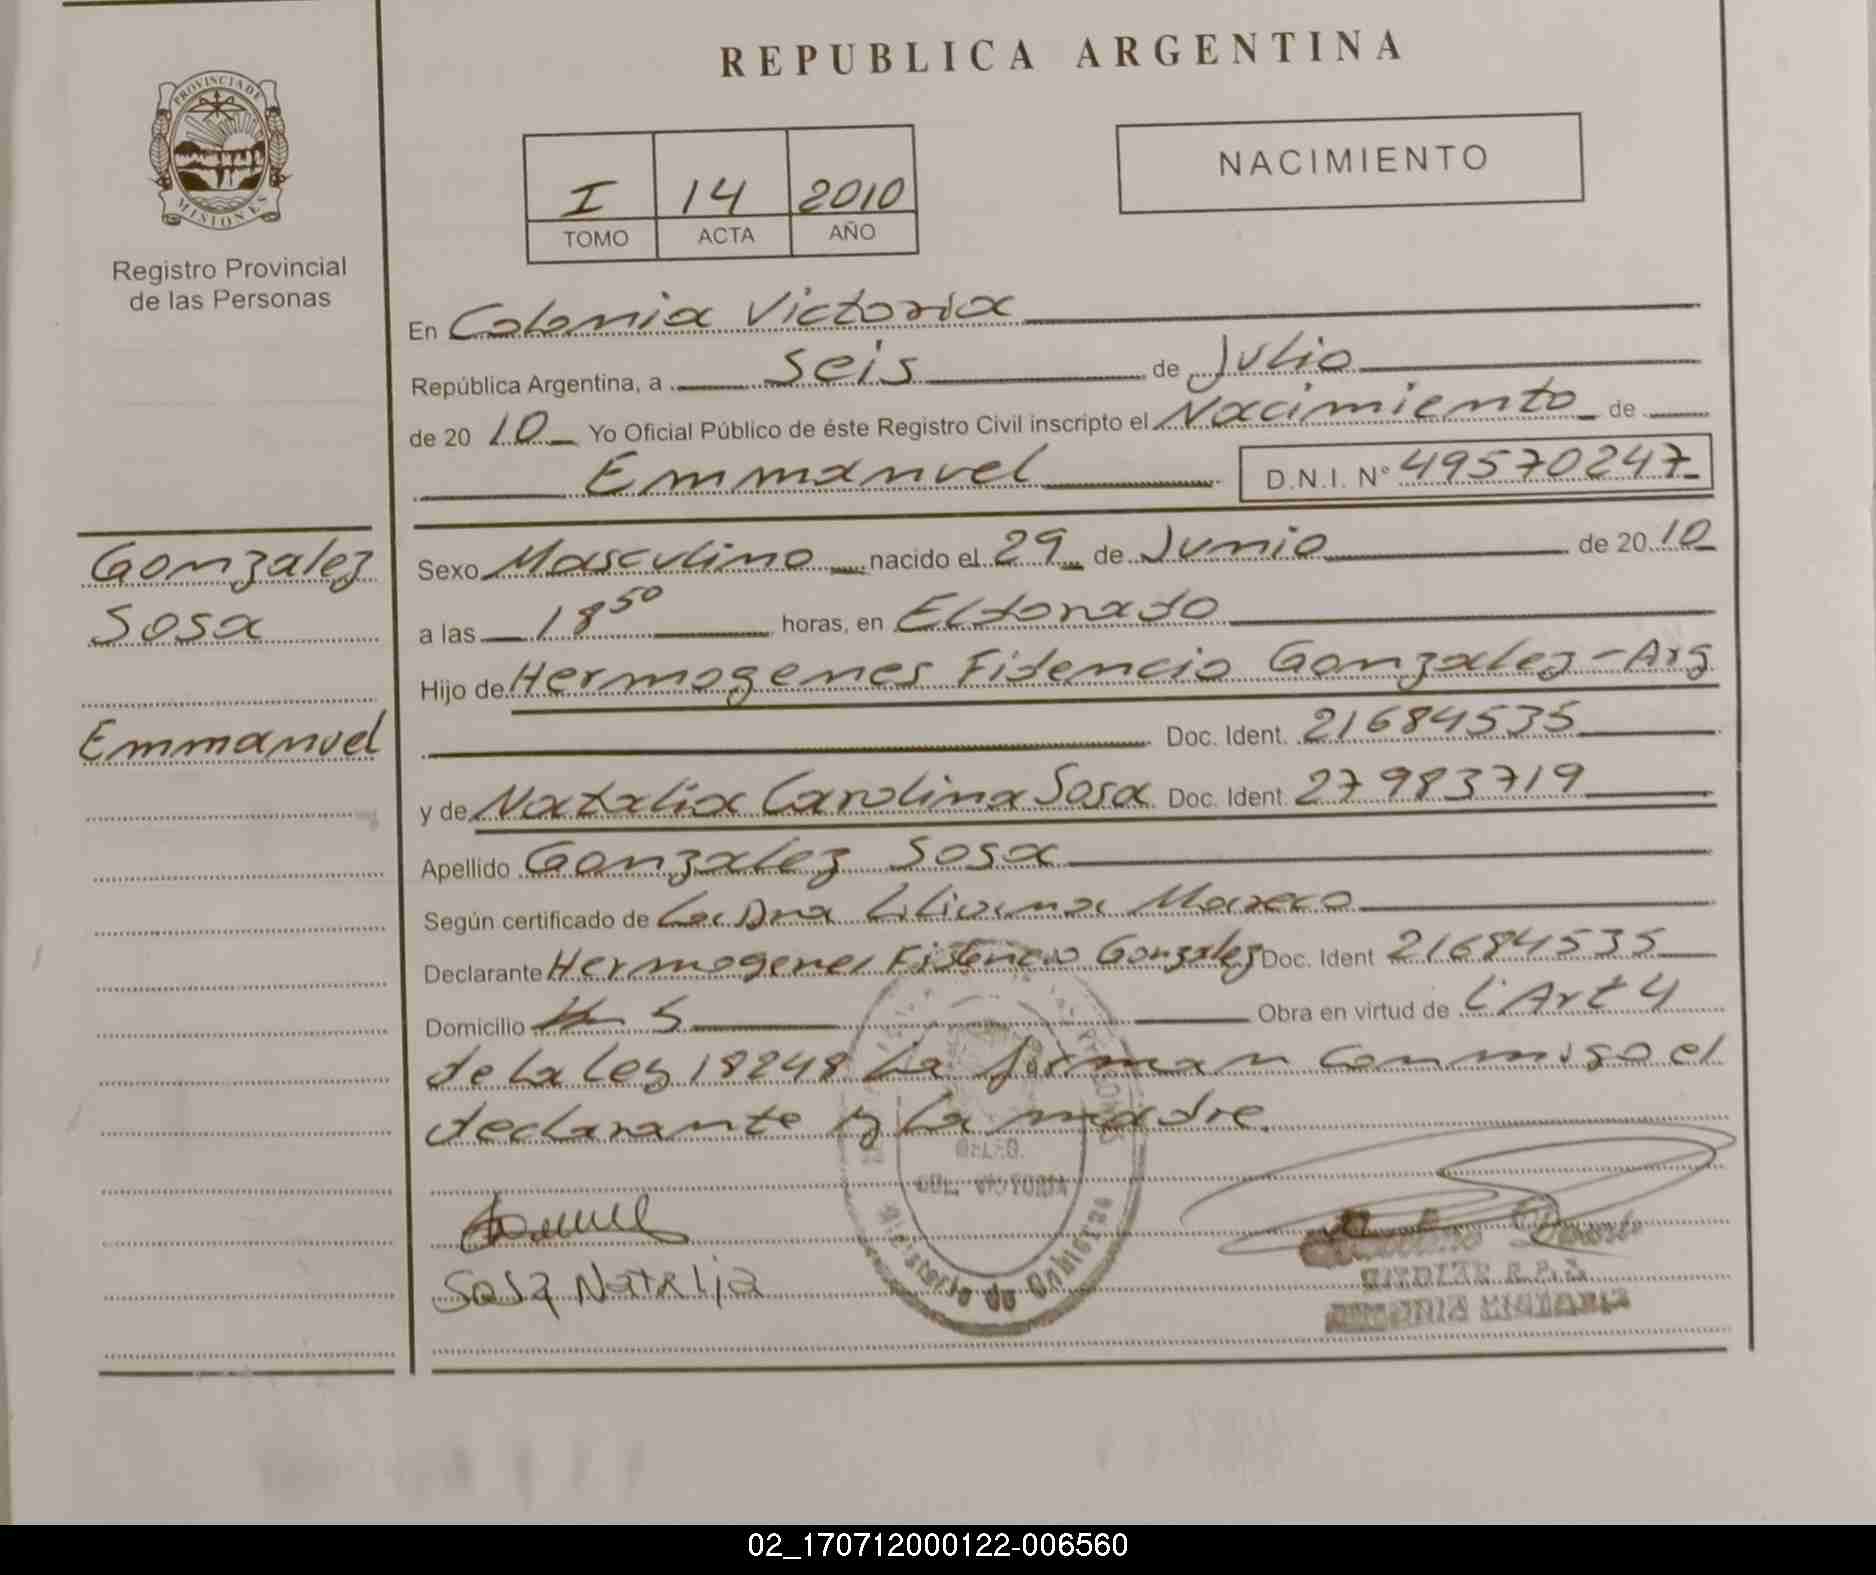 REPUBLICA ARGENTINA
PROVINCIA DE
MISIONES
Registro Provincial
de las Personas
I 14 2010
TOMO ACTA AÑO
NACIMIENTO
En Colonia Victoria
República Argentina, a Seis de Julio
de 20 10 Yo Oficial Público de éste Registro Civil inscripto el Nacimiento de
Emmanuel D.N.I. Nº 49570247
Gonzalez
Sosa
Emmanuel
Sexo Masculino nacido el 29 de Junio de 20 10
a las 18 50 horas, en Eldorado
Hijo de Hermogenes Fidencio Gonzalez - Arg
Doc. Ident. 21684535
y de Natalia Carolina Sosa Doc. Ident. 27983719
Apellido Gonzalez Sosa
Según certificado de La Dra Liliana Mareco
Declarante Hermogenes Fidencio Gonzalez Doc. Ident 21684535
Domicilio 5 Obra en virtud de L Art 4
de la Ley 18248 La firman conmigo el
declarante y la madre.
COL. VICTORIA
Ministerio de Gobierno
Sosa Natalia
TITULAR R.P.
COLONIA VICTORIA
02_170712000122-006560